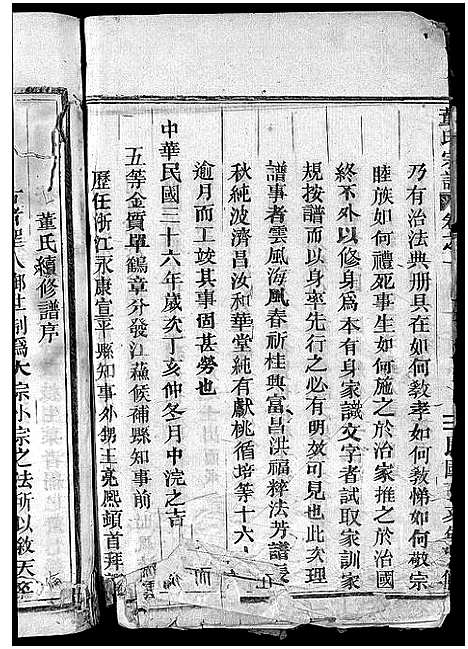 董氏宗譜
乃有治法典册具在如何教孝如何教悌如何敬宗
睦族如何禮死事生如何施之於治家推之於治國
終不外以修身爲本有身家識文字者試取家訓家
規按譜而以身率先行之必有明效可見也此次理
譜事者雲風海風春祈桂興富昌洪福粹法芳譜長
秋純波濟昌汝和華堂純有獻桃循培等十六
逾月而工竣其事固甚勞也
中華民國三十六年歲次丁亥仲冬月中浣之吉
五等金質單鶴章分發江蘇候補縣知事前
歷任浙江永康宣平縣知事外甥王亮熙頓首拜
董氏續修譜序
大宗小宗之法所以敘天